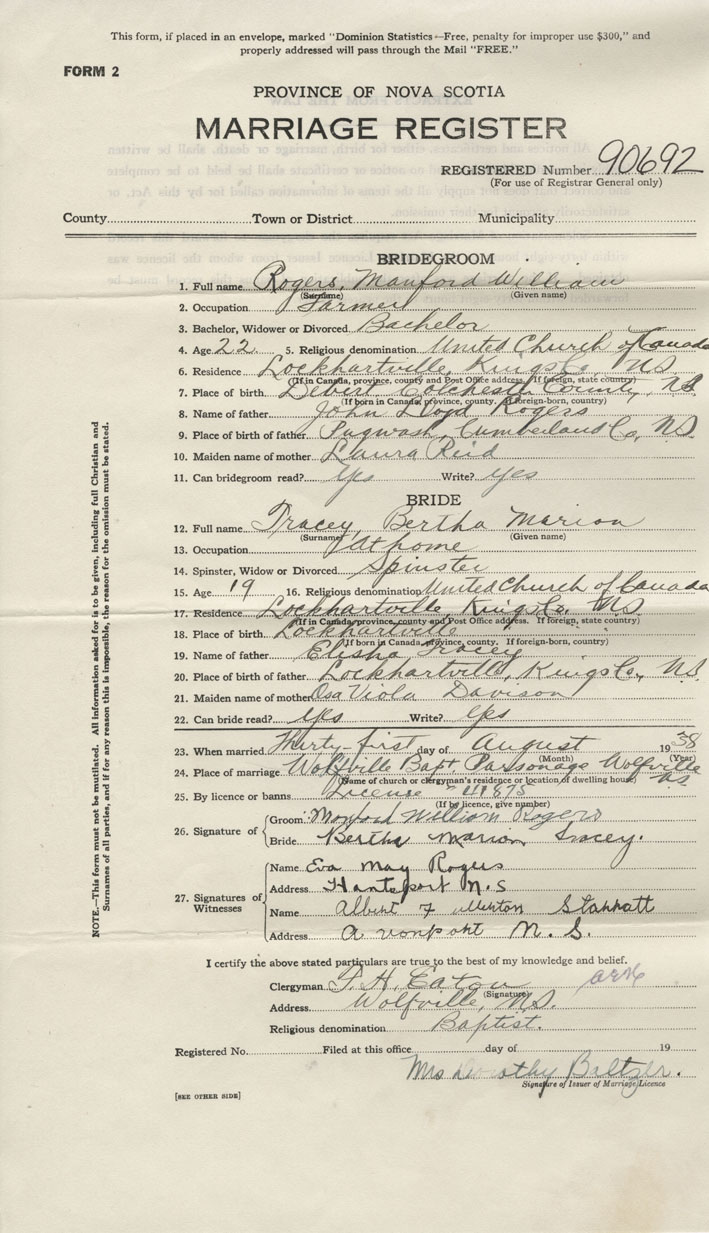 This form, if placed in an envelope, marked "Dominion Statistics—Free, penalty for improper use $300," and
properly addressed will pass through the Mail "FREE."
FORM 2
PROVINCE OF NOVA SCOTIA
MARRIAGE REGISTER
REGISTERED Number 90692
(For use of Registrar General only)
County Town or District Municipality
BRIDEGROOM
1. Full name Rogers, Manford William
(Surname) (Given name)
2. Occupation Farmer
3. Bachelor, Widower or Divorced Bachelor
4. Age 22 5. Religious denomination United Church of Canada
6. Residence Lockhartville, Kings Co, N.S.
(If in Canada, province, county and Post Office address. If foreign, state country)
7. Place of birth Debert Colchester County, N.S.
(If born in Canada, province, county. If foreign-born, country)
8. Name of father John Lloyd Rogers
9. Place of birth of father Pugwash, Cumberland Co, N.S.
10. Maiden name of mother Laura Reid
11. Can bridegroom read? yes Write? yes
BRIDE
12. Full name Tracey, Bertha Marion
(Surname) (Given name)
13. Occupation At home
14. Spinster, Widow or Divorced Spinster
15. Age 19 16. Religious denomination United Church of Canada
17. Residence Lockhartville, Kings Co, N.S.
(If in Canada, province, county and Post Office address. If foreign, state country)
18. Place of birth Lockhartville
(If born in Canada, province, county. If foreign-born, country)
19. Name of father Elisha Tracey
20. Place of birth of father Lockhartville, Kings Co, N.S.
21. Maiden name of mother Osa Viola Davison
22. Can bride read? yes Write? yes
23. When married Thirty-first day of August 1938
(Month) (Year)
24. Place of marriage Wolfville Bapt Parsonage Wolfville N.S.
(Name of church or clergyman's residence or location of dwelling house)
25. By licence or banns License - 41875
(If by licence, give number)
26. Signature of Groom Manford William Rogers
Bride Bertha Marion Tracey.
27. Signatures of Witnesses
Name Eva May Rogers
Address Hantsport N.S
Name Albert F Starratt
Address Avonport N. S.
I certify the above stated particulars are true to the best of my knowledge and belief.
Clergyman Eaton
(Signature)
Address Wolfville, N.S.
Religious denomination Baptist.
Registered No. Filed at this office day of 19
Mrs Dorothy Baltzer.
Signature of Issuer of Marriage Licence
[SEE OTHER SIDE]
NOTE.—This form must not be mutilated. All information asked for is to be given, including full Christian and
Surnames of all parties, and if for any reason this is impossible, the reason for the omission must be stated.